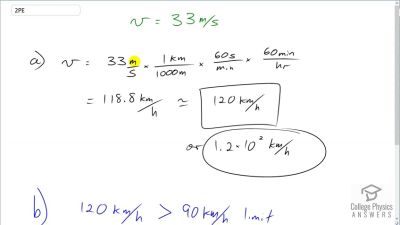 2PE
v = 33 m/s
a) v = 33 m/s × 1 km/1000m × 60s/min × 60min/hr
= 118.8 km/h ≃ 120 km/h
or 1.2×10² km/h
b) 120 km/h > 90 km/h limit
College Physics
ANSWERS